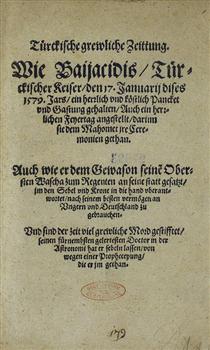 Türckische grewliche Zeittung.
Wie Baijacidis / Tür-
ckischer Keiser / den 17. Januarij dises
1579. Jars / ein herlich vnd köstlich Pancket
vnd Gastung gehalten / Auch ein her-
lichen Feyertag angestellt / darinn
sie dem Mahomet jre Cere-
monien gethan.
Auch wie er dem Gewason seinē Ober-
sten Wascha zum Regenten an seine statt gesatzt /
jm den Sebel vnd Krone in die hand vberant-
wortet / nach seinem besten vermögen an
Vngern vnd Deutschland zu
gebrauchen.
Vnd sind der zeit viel grewliche Mord gestifftet /
seinen fürnembsten gelertesten Doctor in der
Astronomi hat er sebeln lassen / von
wegen einer Propheceyung /
die er jm gethan.
179